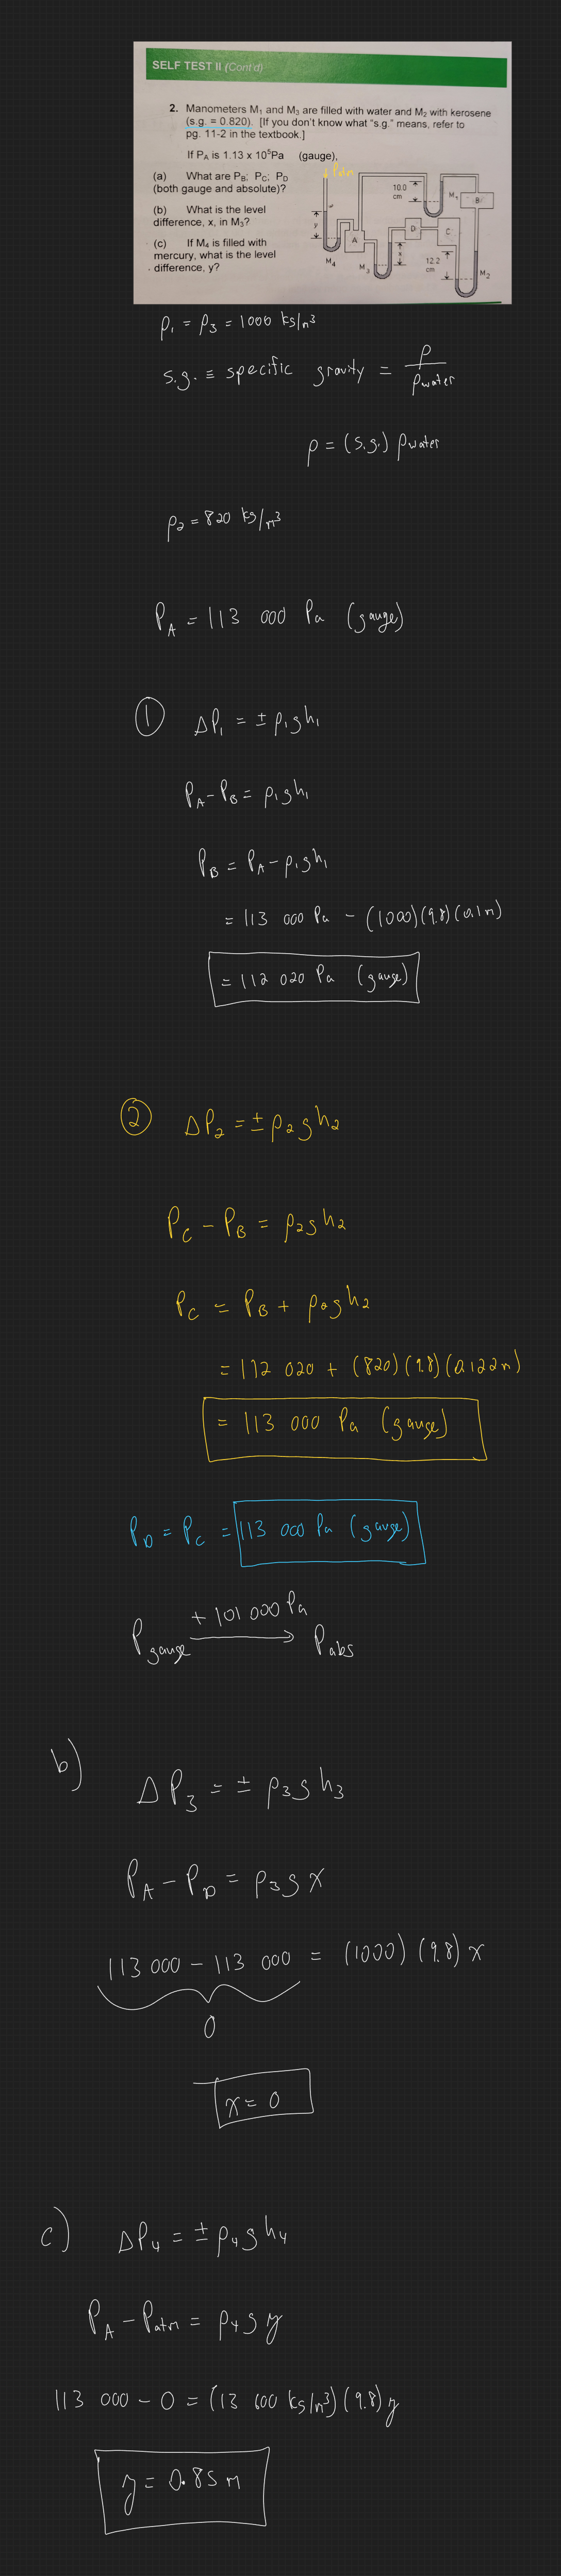 SELF TEST II (Cont'd)
2. Manometers M₁ and M₃ are filled with water and M₂ with kerosene
(s.g. = 0.820). [If you don't know what "s.g." means, refer to
pg. 11-2 in the textbook.]
If P_A is 1.13 x 10⁵Pa (gauge),
(a) What are P_B; P_C; P_D
(both gauge and absolute)?
(b) What is the level
difference, x, in M₃?
(c) If M₄ is filled with
mercury, what is the level
difference, y?
↓ Patm
10.0
cm
M₁
B
y
A
D
C
M₄
M₃
x
12.2
cm
M₂
ρ₁ = ρ₃ = 1000 kg/m³
s.g. ≡ specific gravity = ρ / ρwater
ρ = (s.g.) ρwater
ρ₂ = 820 kg/m³
P_A = 113 000 Pa (gauge)
① ΔP₁ = ± ρ₁gh₁
P_A - P_B = ρ₁gh₁
P_B = P_A - ρ₁gh₁
= 113 000 Pa - (1000)(9.8)(0.1m)
= 112 020 Pa (gauge)
② ΔP₂ = ± ρ₂gh₂
P_C - P_B = ρ₂gh₂
P_C = P_B + ρ₂gh₂
= 112 020 + (820)(9.8)(0.122m)
= 113 000 Pa (gauge)
P_D = P_C = 113 000 Pa (gauge)
+ 101 000 Pa
P_gauge → P_abs
b) ΔP₃ = ± ρ₃gh₃
P_A - P_D = ρ₃gx
113 000 - 113 000 = (1000)(9.8)x
0
x = 0
c) ΔP₄ = ± ρ₄gh₄
P_A - P_atm = ρ₄gy
113 000 - 0 = (13 600 kg/m³)(9.8)y
y = 0.85 m